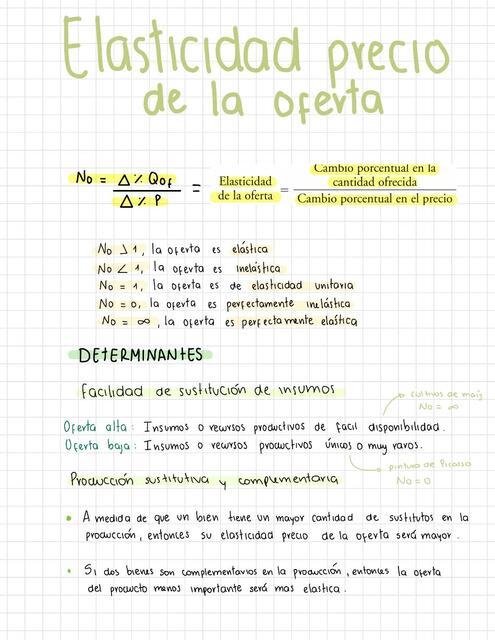 Elasticidad precio
de la oferta
No = Δ% Qof / Δ% P = Elasticidad de la oferta = Cambio porcentual en la cantidad ofrecida / Cambio porcentual en el precio
No > 1, la oferta es elástica
No < 1, la oferta es inelástica
No = 1, la oferta es de elasticidad unitaria
No = 0, la oferta es perfectamente inelástica
No = ∞, la oferta es perfectamente elástica
DETERMINANTES
Facilidad de sustitución de insumos
cultivos de maíz
No = ∞
Oferta alta: Insumos o recursos productivos de facil disponibilidad.
Oferta baja: Insumos o recursos productivos únicos o muy raros.
pintura de Picasso
No = 0
Producción sustitutiva y complementaria
• A medida de que un bien tiene un mayor cantidad de sustitutos en la
producción, entonces su elasticidad precio de la oferta será mayor.
• Si dos bienes son complementarios en la producción, entonces la oferta
del producto menos importante será mas elastica.